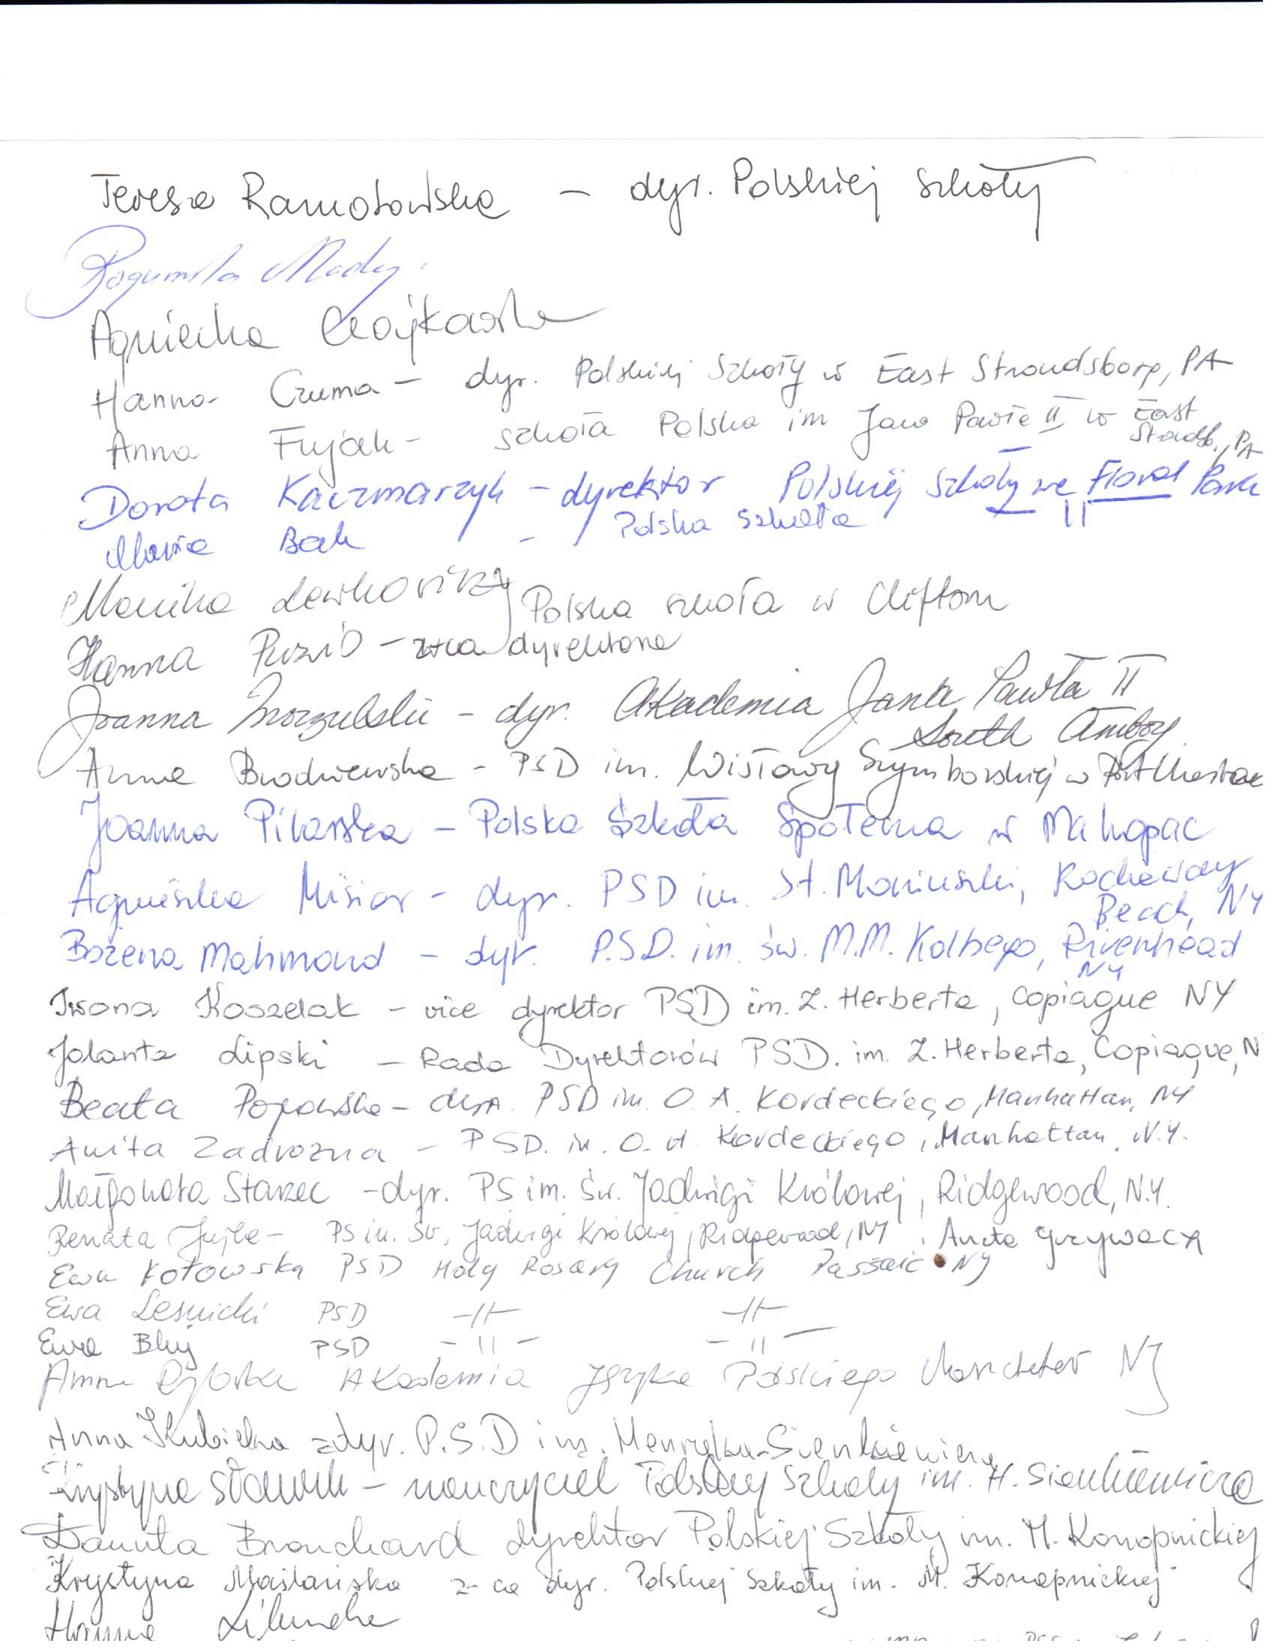 Teresa Ramotowska – dyr. Polskiej Szkoły
Bogumiła Maday
Agnieszka
Hanna Czuma – dyr. Polskiej Szkoły w East Stroudsborg, PA
Anna Fujak – szkoła Polska im Jana Pawła II w East Stroudsb., PA
Dorota Kaczmarzyk – dyrektor Polskiej Szkoły we Floral Park
Maria Bak – Polska Szkoła —"—
Monika Lewkowicz Polska szkoła w Clifton
Hanna Puzio – z-ca dyrektora
Joanna – dyr. Akademia Jana Pawła II
South Amboy
Anna Brodziewska – PSD im. Wisławy Szymborskiej w Port
Joanna Pilarska – Polska Szkoła Społeczna w Mahopac
Agnieszka Misior – dyr. PSD im. St. Moniuszki, Rockaway
Beach, NY
Bożena Mahmoud – dyr. P.S.D. im. św. M.M. Kolbego, Riverhead
NY
Iwona Koszelak – vice dyrektor PSD im. Z. Herberta, Copiague NY
Jolanta Lipski – Rada Dyrektorów PSD. im. Z. Herberta, Copiague, N
Beata Popowska – dyr. PSD im. O. A. Kordeckiego, Manhattan, NY
Anita Zadrozna – PSD. im. O. A. Kordeckiego, Manhattan, N.Y.
Małgorzata Starzec – dyr. PS im. Św. Jadwigi Królowej, Ridgewood, N.Y.
Renata Jujka – PS im. Św. Jadwigi Królowej, Ridgewood, NY, Aneta Grzywacz
Ewa Kotowska PSD Holy Rosary Church Passaic NJ
Ewa Lesnicki PSD —"— —"—
Ewa Bluj PSD —"— —"—
Anna Akademia Języka Polskiego NJ
Anna Kubicka dyr. P.S.D im. Henryka Sienkiewicza
Krystyna – nauczyciel Polskiej Szkoły im. H. Sienkiewicza
Danuta Bronchard dyrektor Polskiej Szkoły im. M. Konopnickiej
Krystyna Maślańska z-ca dyr. Polskiej Szkoły im. M. Konopnickiej
Hanna